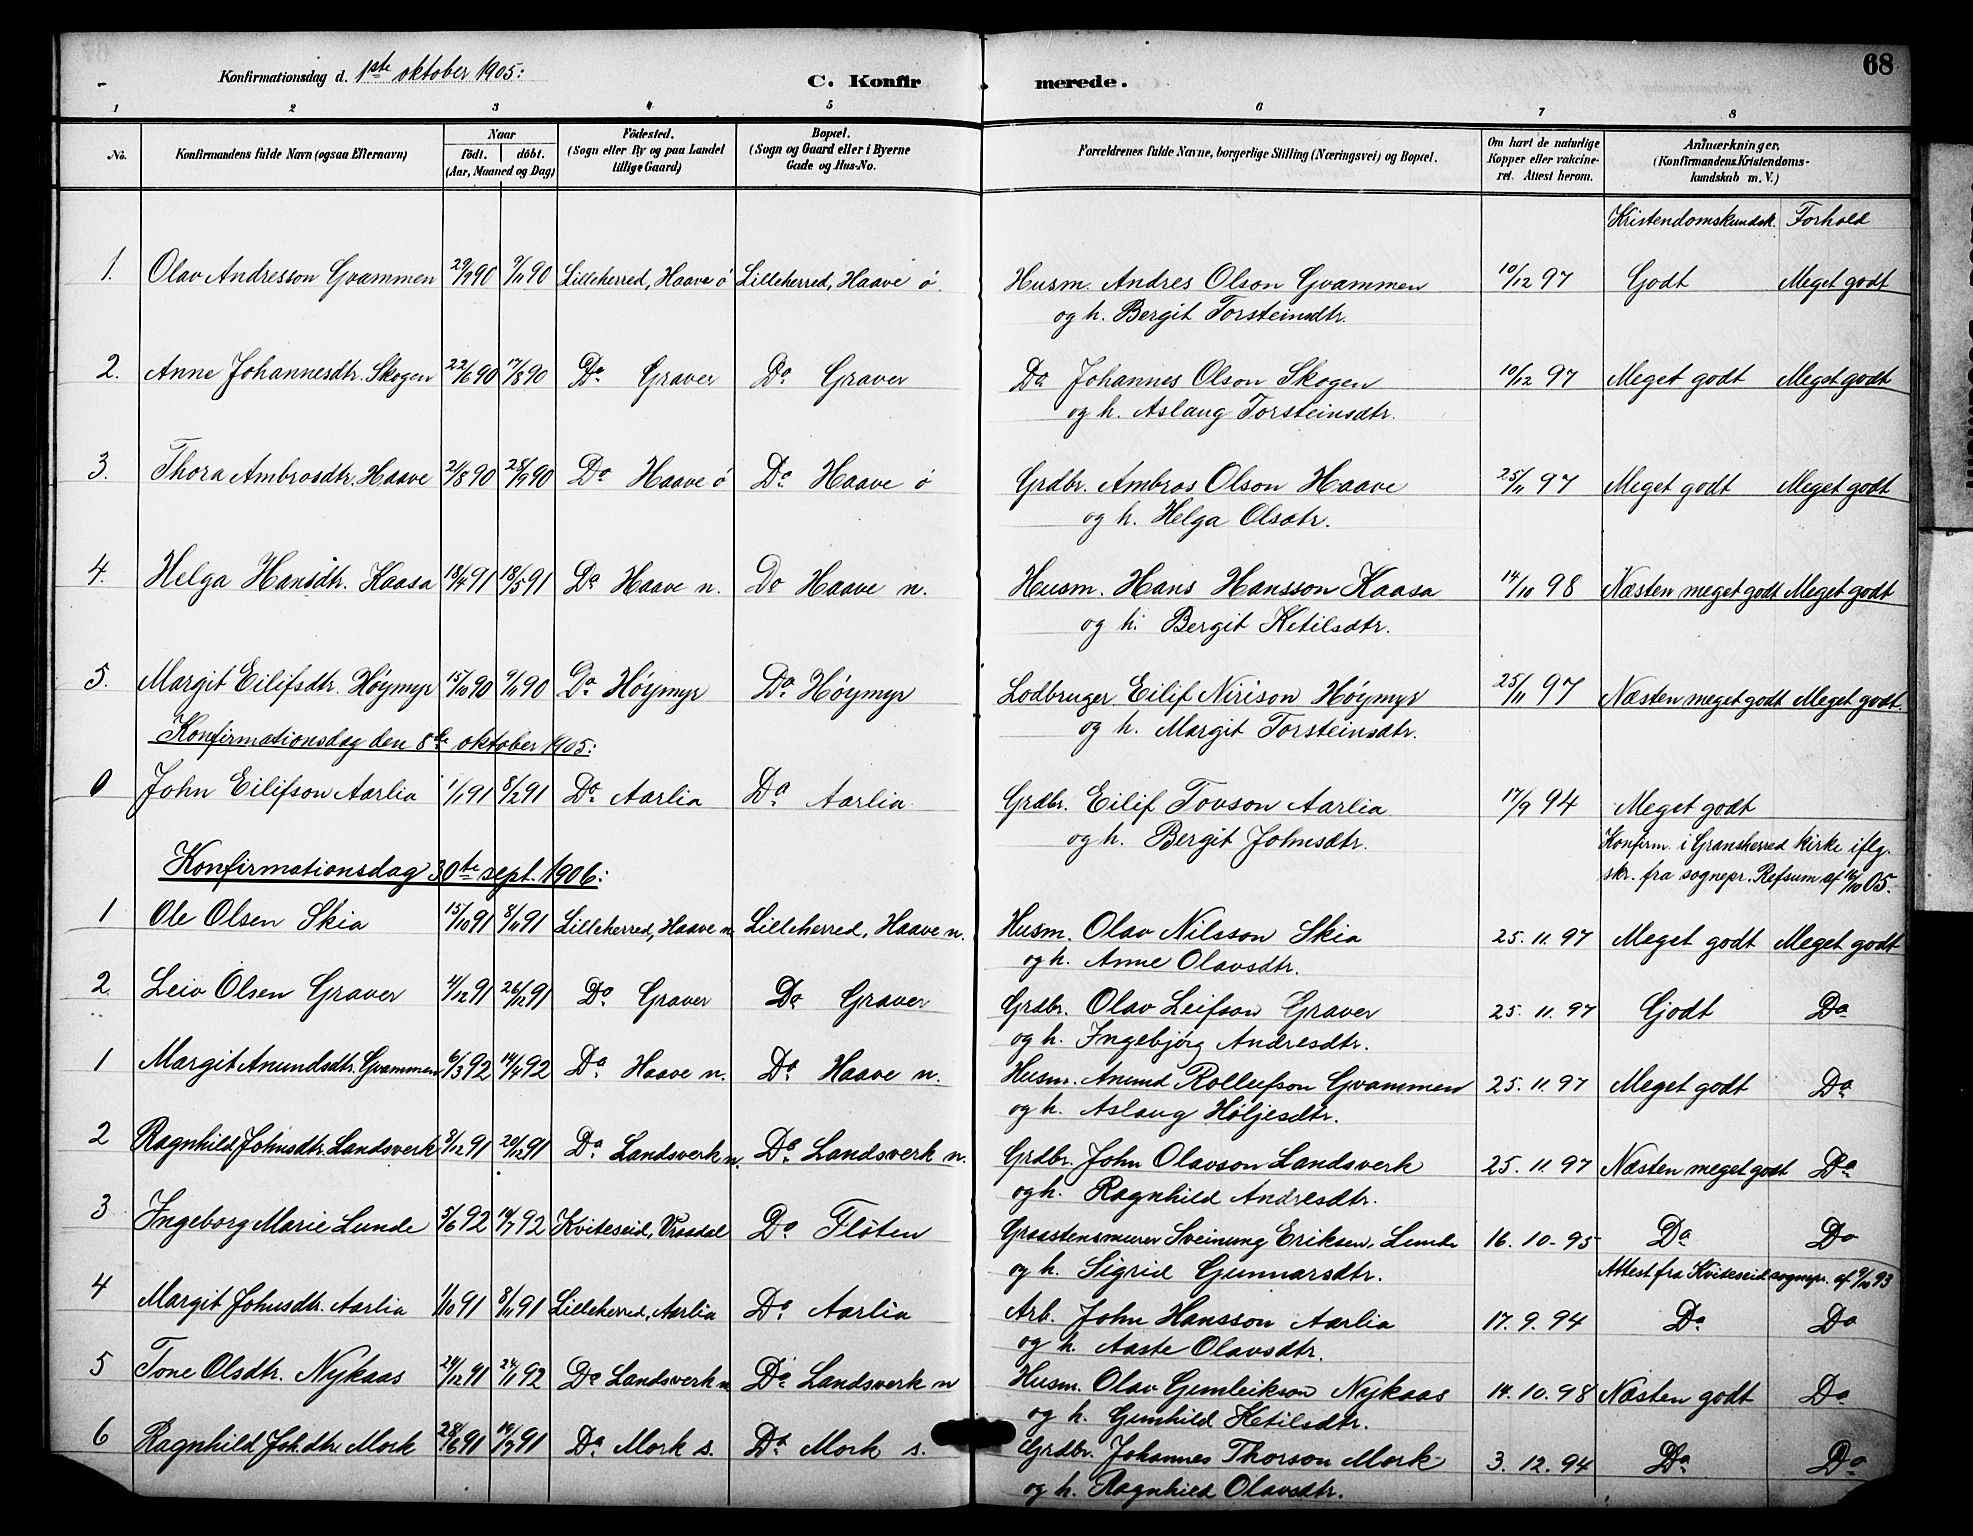 Konfirmationsdag d. 1ste oktober 1905:
C. Konfirmerede.
68
1 2 3 4 5 6 7 8
No.
Konfirmandens fulde Navn (ogsaa Efternavn)
Naar
født. døbt.
(Aar, Maaned og Dag)
Fødested.
(Sogn eller By og paa Landet
tillige Gaard)
Bopæl.
(Sogn og Gaard eller i Byerne
Gade og Hus-No.
Forældrenes fulde Navne, borgerlige Stilling (Næringsvei) og Bopæl.
Om havt de naturlige
Kopper eller vakcine-
ret. Attest herom.
Anmærkninger.
(Konfirmandens Kristendoms-
kundskab m. V.)
Kristendomskundsk. Forhold
1. Olav Andresson Gvammen 29/9 90 9/11 90 Lilleherred, Haave ø Lilleherred, Haave ø. Husm. Andres Olson Gvammen 10/12 97 Godt Meget godt
og h. Bergit Torsteinsdtr.
2. Anne Johannesdtr. Skogen 22/6 90 17/8 90 Do Graver Do Graver Do Johannes Olson Skogen 10/12 97 Meget godt Meget godt
og h. Aslaug Torsteinsdtr.
3. Thora Ambrosdtr. Haave 21/8 90 28/9 90 Do Haave ø Do Haave ø Grdbr. Ambros Olson Haave 25/11 97 Meget godt Meget godt
og h. Helga Olsdtr.
4. Helga Hansdtr. Kaasa 18/4 91 18/5 91 Do Haave n. Do Haave n. Husm. Hans Hansson Kaasa 14/10 98 Næsten meget godt Meget godt
og h. Bergit Ketilsdtr.
5. Margit Eilifsdtr. Høymyr 15/10 90 9/11 90 Do Høymyr Do Høymyr Lodbruger Eilif Nirison Høymyr 25/11 97 Næsten meget godt Meget godt.
og h. Margit Torsteinsdtr.
Konfirmationsdag den 8de oktober 1905:
0 John Eilifson Aarlia 1/1 91 8/2 91 Do Aarlia Do Aarlia Grdbr. Eilif Tovson Aarlia 17/9 94 Meget godt
og h. Bergit Johnsdtr.
Konfirm. i Gransherred kirke iflg.
skr. fra sognepr. Refsum af 16/10 05.
Konfirmationsdag 30te sept. 1906:
1 Ole Olsen Skia 15/10 91 8/11 91 Lilleherred, Haave n. Lilleherred, Haave n. Husm. Olav Nilsson Skia 25.11.97 Meget godt Meget godt
og h. Anne Olavsdtr.
2. Leiv Olsen Graver 4/12 91 26/12 91 Do Graver Do Graver Grdbr. Olav Leifson Graver 25.11.97 Godt Do
og h. Ingebjørg Andresdtr.
1 Margit Anundsdtr. Gvammen 6/3 92 14/4 92 Do Haave n. Do Haave n. Husm. Anund Rollefson Gvammen 25.11.97 Meget godt Do
og h. Aslaug Høljesdtr.
2 Ragnhild Johnsdtr. Landsverk 3/12 91 20/12 91 Do Landsverk n. Do Landsverk n. Grdbr. John Olavson Landsverk 25.11.97 Næsten meget godt Do
og h. Ragnhild Andresdtr.
3 Ingeborg Marie Lunde 5/6 92 14/7 92 Kviteseid, Vraadal Do Fløten Graastensmurer Sveinung Eriksen Lunde 16.10.95 Do Do
og h. Sigrid Gunnarsdtr. Attest fra Kviteseid sognepr.
4 Margit Johnsdtr. Aarlia 1/10 91 8/11 91 Lilleherred, Aarlia Do Aarlia Arb. John Hansson Aarlia 17.9.94 Do Do
og h. Aaste Olavsdtr.
5 Tone Olsdtr. Nykaas 24/12 91 24/1 92 Do Landsverk n Do Landsverk n Husm. Olav Gunleikson Nykaas 14.10.98 Næsten godt Do
og h. Gunhild Ketilsdtr.
6 Ragnhild Joh.dtr. Mork 28/6 91 19/7 91 Do Mork s. Do Mork s. Grdbr. Johannes Thorson Mork 3.12.94 Do Do
og h. Ragnhild Olavsdtr.